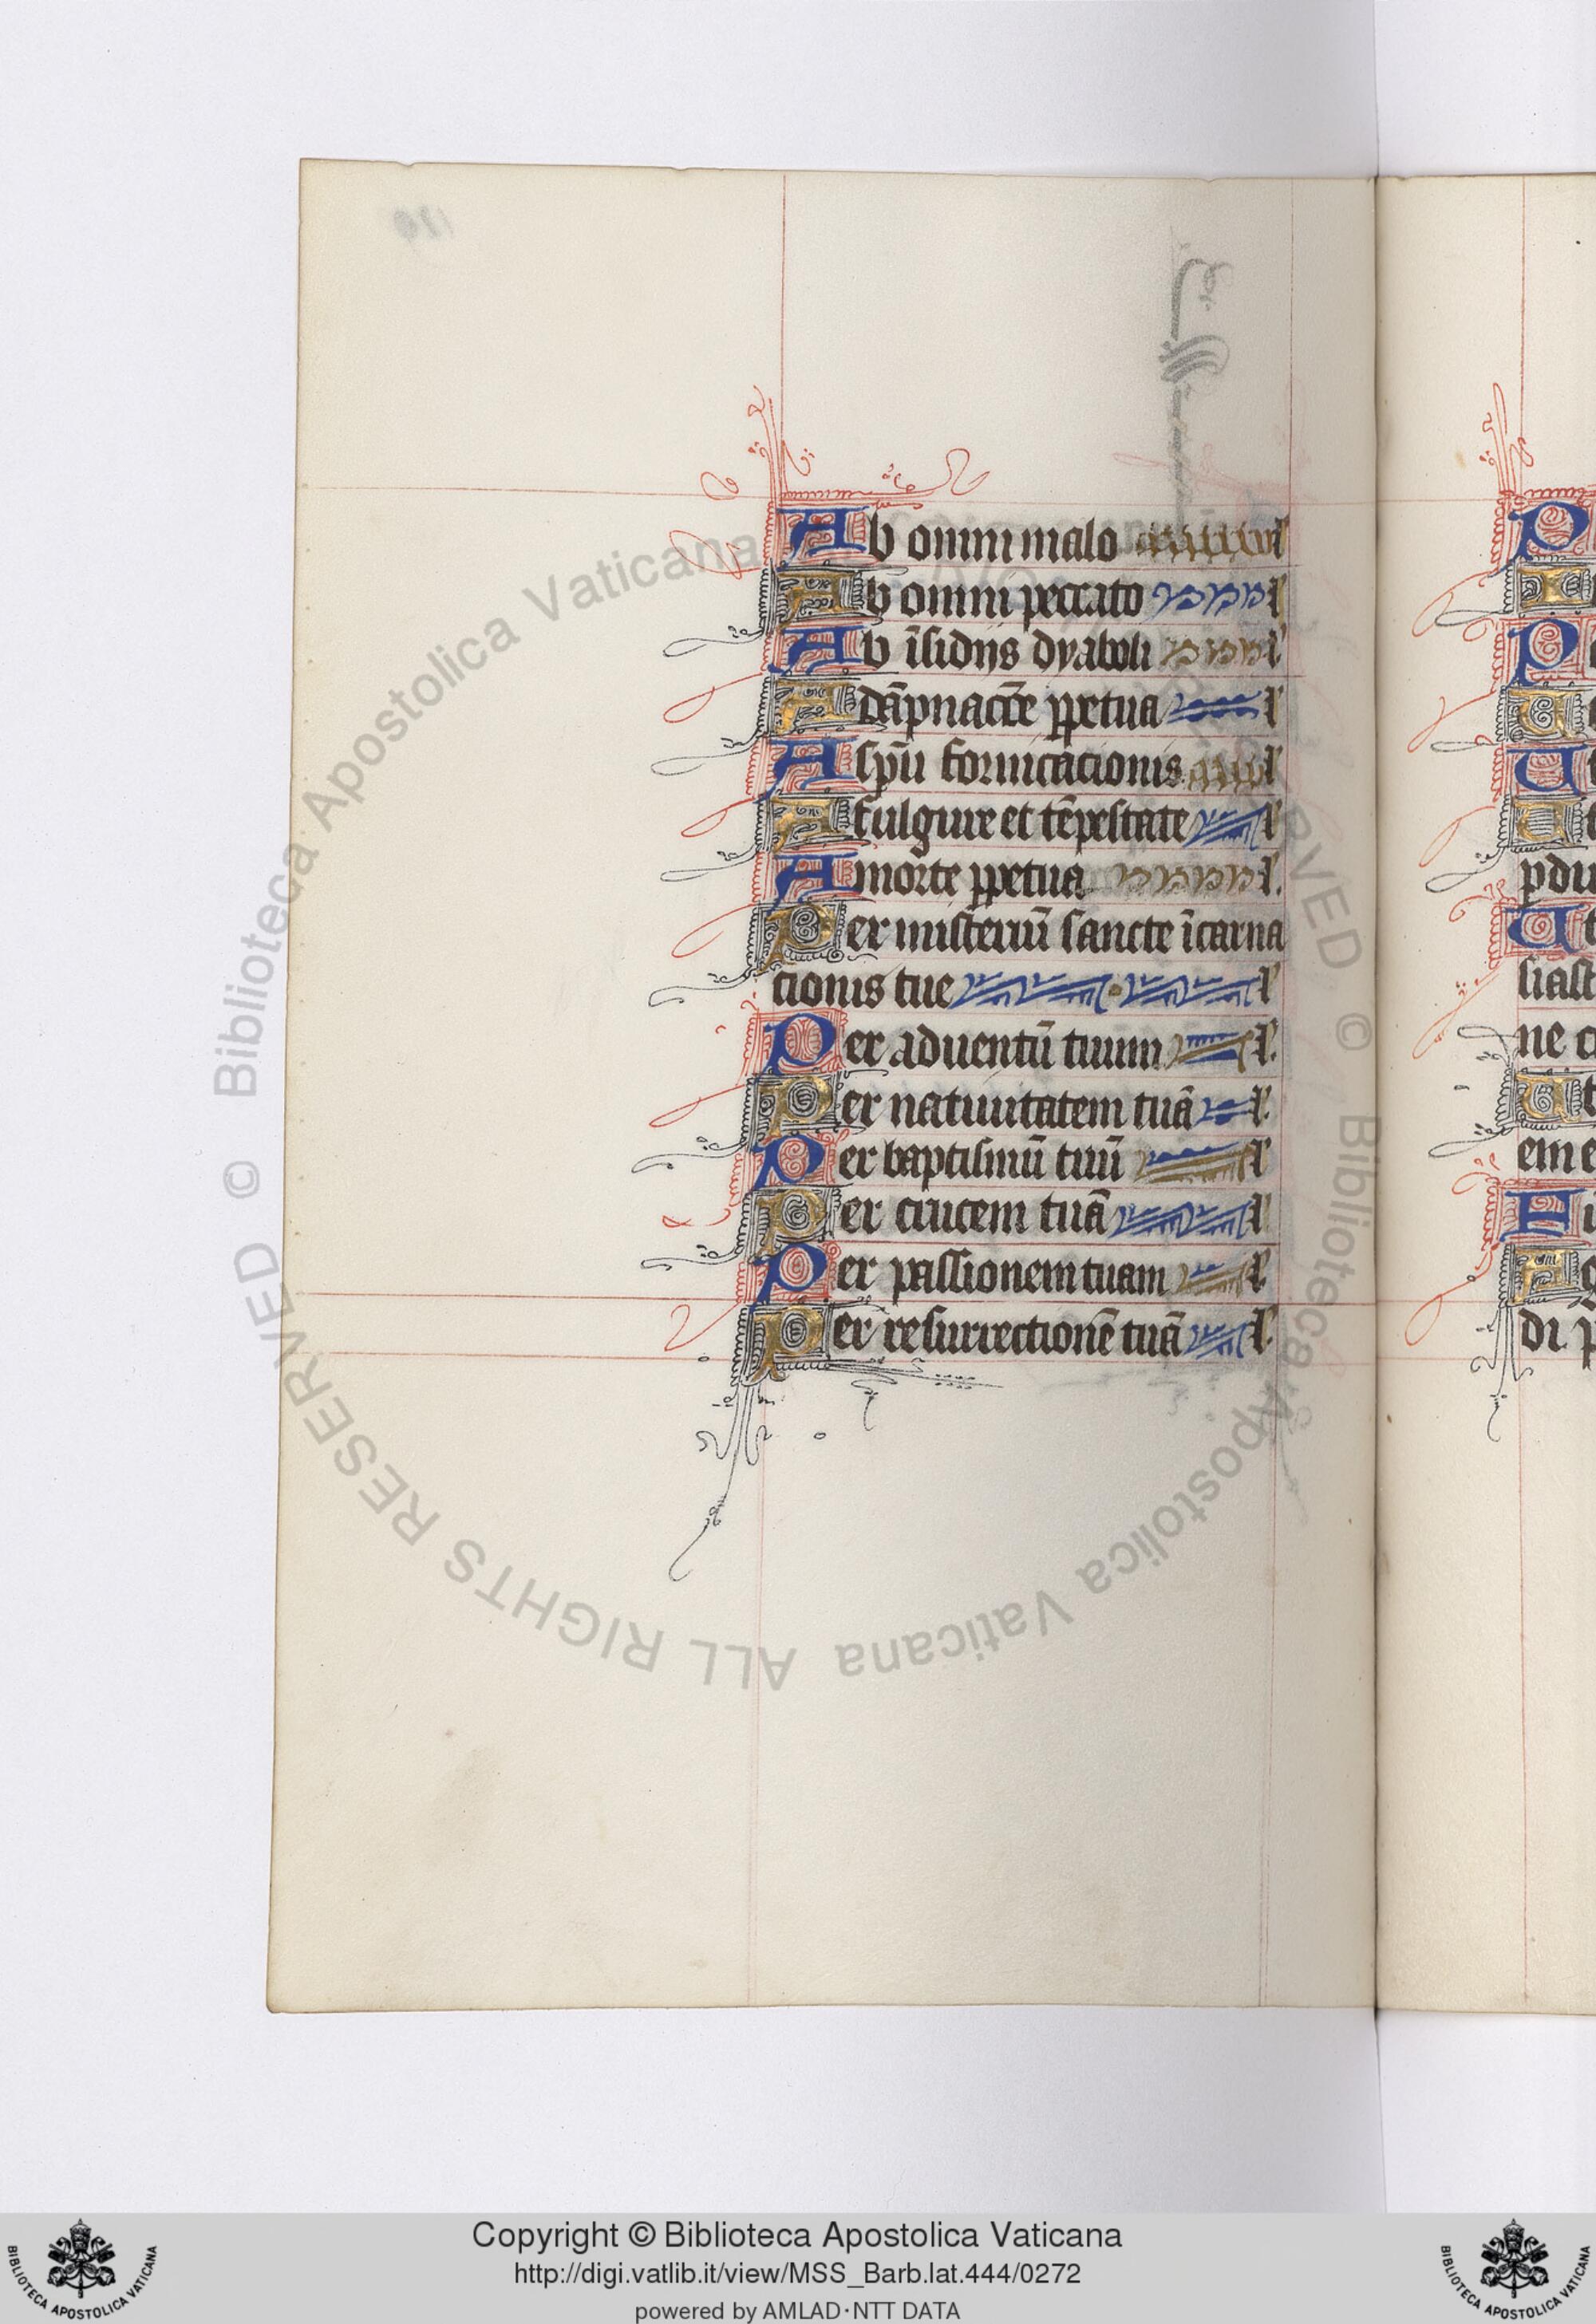 Ab omni malo l
Ab omni peccato l
Ab īsidijs dyaboli l
A dāpnacōe ꝑpetua l
A spū fornicacionis l
A fulgure et tēpestate l
A morte ꝑpetua l.
Per misteriū sancte īcarna
cionis tue l
Per aduentū tuum l.
Per natiuitatem tuā l.
Per baptismū tuū l
Per crucem tuā l
Per passionem tuam l.
Per resurrectionē tuā l.
P
P
ꝑdi
siast
ne c
eme
di p
© Biblioteca Apostolica Vaticana ALL RIGHTS RESERVED © Biblioteca Apostolica Vaticana
Copyright © Biblioteca Apostolica Vaticana
http://digi.vatlib.it/view/MSS_Barb.lat.444/0272
powered by AMLAD·NTT DATA
BIBLIOTECA APOSTOLICA VATICANA
BIBLIOTECA APOSTOLICA VATICANA